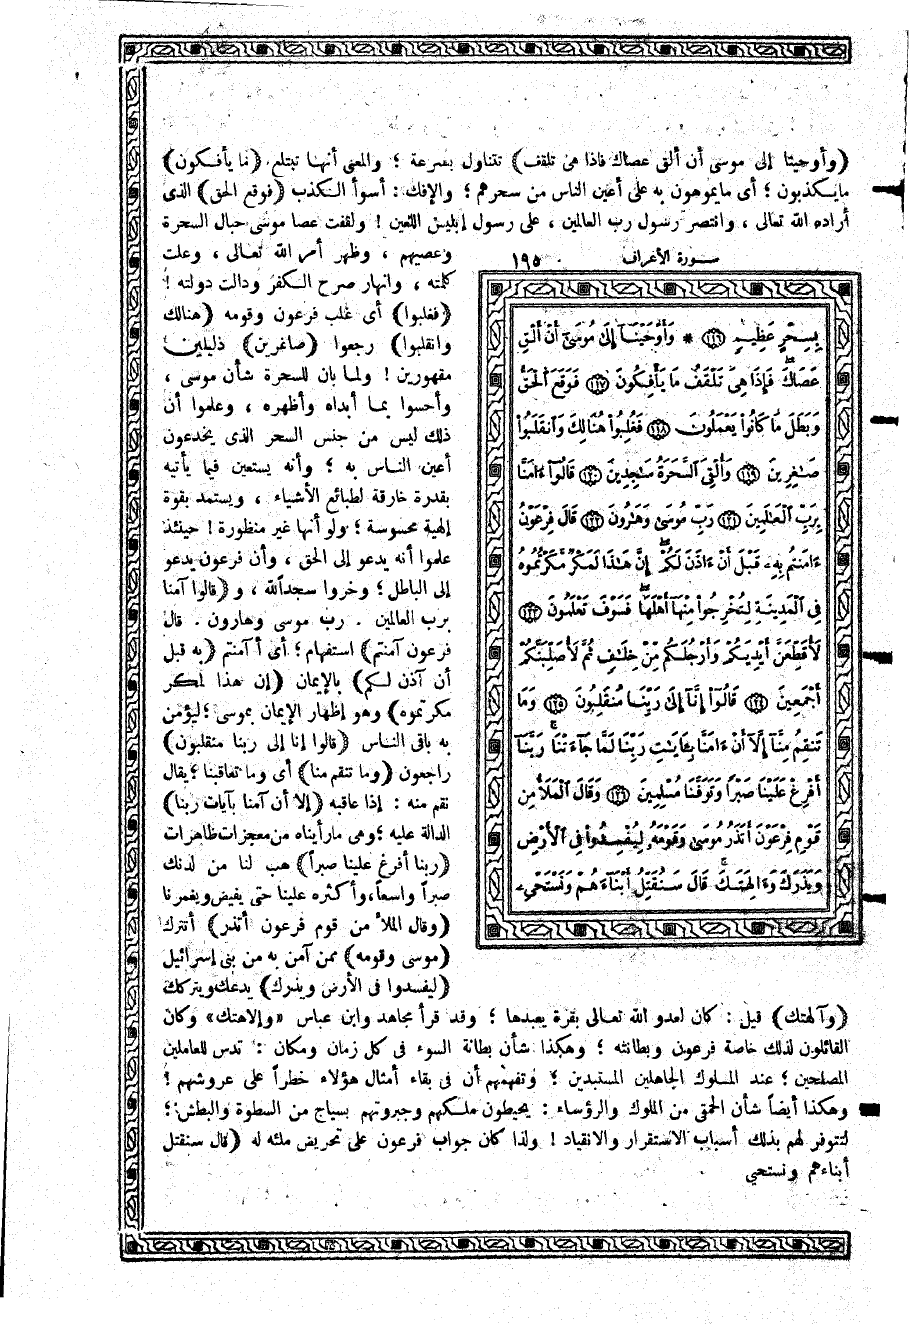 (وأوحينا إلى موسى أن ألق عصاك فاذا هى تلقف) تتناول بسرعة ؛ والمعنى أنها تبتلع (ما يأفكون)
مايكذبون ؛ أى مايموهون به على أعين الناس من سحرهم ؛ والإفك : أسوأ الكذب (فوقع الحق) الذى
أراده الله تعالى ، وانتصر رسول رب العالمين ، على رسول إبليس اللعين ! ولقفت عصا موسى حبال السحرة
وعصيهم ، وظهر أمر الله تعالى ، وعلت
كلمته ، وانهار صرح الكفر ودالت دولته !
(فغلبوا) أى غلب فرعون وقومه (هنالك
وانقلبوا) رجعوا (صاغرين) ذليلين
مقهورين ! ولما بان للسحرة شأن موسى ،
وأحسوا بما أبداه وأظهره ، وعلموا أن
ذلك ليس من جنس السحر الذى يخدعون
أعين الناس به ؛ وأنه يستعين فيما يأتيه
بقدرة خارقة لطبائع الأشياء ، ويستمد بقوة
إلهية محسوسة ؛ ولو أنها غير منظورة ! حينئذ
علموا أنه يدعو إلى الحق ، وأن فرعون يدعو
إلى الباطل ؛ وخروا سجداً لله ، و (قالوا آمنا
برب العالمين . رب موسى وهارون . قال
فرعون آمنتم) استفهام ؛ أى أآمنتم (به قبل
أن آذن لكم) بالإيمان (إن هذا لمكر
مكرتموه) وهو إظهار الإيمان بموسى ؛ ليؤمن
به باقى الناس (قالوا إنا إلى ربنا منقلبون)
راجعون (وما تنقم منا) أى وما تعاقبنا ؛ يقال
نقم منه : إذا عاقبه (إلا أن آمنا بآيات ربنا)
الدالة عليه ؛ وهى مارأيناه من معجزات ظاهرات
(ربنا أفرغ علينا صبراً) هب لنا من لدنك
صبراً واسعاً، وأكثره علينا حتى يفيض ويغمرنا
(وقال الملأ من قوم فرعون أتذر) أتترك
(موسى وقومه) بمن آمن به من بنى إسرائيل
(ليفسدوا فى الأرض ويذرك) يدعك ويتركك
سورة الأعراف ١٩٥
بِسِحْرٍ عَظِيمٍ ﴿١١٦﴾ * وَأَوْحَيْنَآ إِلَىٰ مُوسَىٰٓ أَنْ أَلْقِ
عَصَاكَ ۖ فَإِذَا هِىَ تَلْقَفُ مَا يَأْفِكُونَ ﴿١١٧﴾ فَوَقَعَ ٱلْحَقُّ
وَبَطَلَ مَا كَانُوا۟ يَعْمَلُونَ ﴿١١٨﴾ فَغُلِبُوا۟ هُنَالِكَ وَٱنقَلَبُوا۟
صَـٰغِرِينَ ﴿١١٩﴾ وَأُلْقِىَ ٱلسَّحَرَةُ سَـٰجِدِينَ ﴿١٢٠﴾ قَالُوٓا۟ ءَامَنَّا
بِرَبِّ ٱلْعَـٰلَمِينَ ﴿١٢١﴾ رَبِّ مُوسَىٰ وَهَـٰرُونَ ﴿١٢٢﴾ قَالَ فِرْعَوْنُ
ءَامَنتُم بِهِۦ قَبْلَ أَنْ ءَاذَنَ لَكُمْ ۖ إِنَّ هَـٰذَا لَمَكْرٌ مَّكَرْتُمُوهُ
فِى ٱلْمَدِينَةِ لِتُخْرِجُوا۟ مِنْهَآ أَهْلَهَا ۖ فَسَوْفَ تَعْلَمُونَ ﴿١٢٣﴾
لَأُقَطِّعَنَّ أَيْدِيَكُمْ وَأَرْجُلَكُم مِّنْ خِلَـٰفٍ ثُمَّ لَأُصَلِّبَنَّكُمْ
أَجْمَعِينَ ﴿١٢٤﴾ قَالُوٓا۟ إِنَّآ إِلَىٰ رَبِّنَا مُنقَلِبُونَ ﴿١٢٥﴾ وَمَا
تَنقِمُ مِنَّآ إِلَّآ أَنْ ءَامَنَّا بِـَٔايَـٰتِ رَبِّنَا لَمَّا جَآءَتْنَا ۚ رَبَّنَآ
أَفْرِغْ عَلَيْنَا صَبْرًا وَتَوَفَّنَا مُسْلِمِينَ ﴿١٢٦﴾ وَقَالَ ٱلْمَلَأُ مِن
قَوْمِ فِرْعَوْنَ أَتَذَرُ مُوسَىٰ وَقَوْمَهُۥ لِيُفْسِدُوا۟ فِى ٱلْأَرْضِ
وَيَذَرَكَ وَءَالِهَتَكَ ۚ قَالَ سَنُقَتِّلُ أَبْنَآءَهُمْ وَنَسْتَحْىِۦ
(وآلهتك) قيل : كان لعدو الله تعالى بقرة يعبدها ؛ وقد قرأ مجاهد وابن عباس «وإلاهتك» وكان
القائلون لذلك خاصة فرعون وبطانته ؛ وهكذا شأن بطانة السوء فى كل زمان ومكان : تدس للعاملين
المصلحين ؛ عند الملوك الجاهلين المستبدين ؛ وتفهمهم أن فى بقاء أمثال هؤلاء خطراً على عروشهم !
وهكذا أيضاً شأن الحمقى من الملوك والرؤساء : يحيطون ملكهم وجبروتهم بسياج من السطوة والبطش ؛
لتتوفر لهم بذلك أسباب الاستقرار والانقياد ! ولذا كان جواب فرعون على تحريض ملئه له (قال سنقتل
أبناءهم ونستحيي